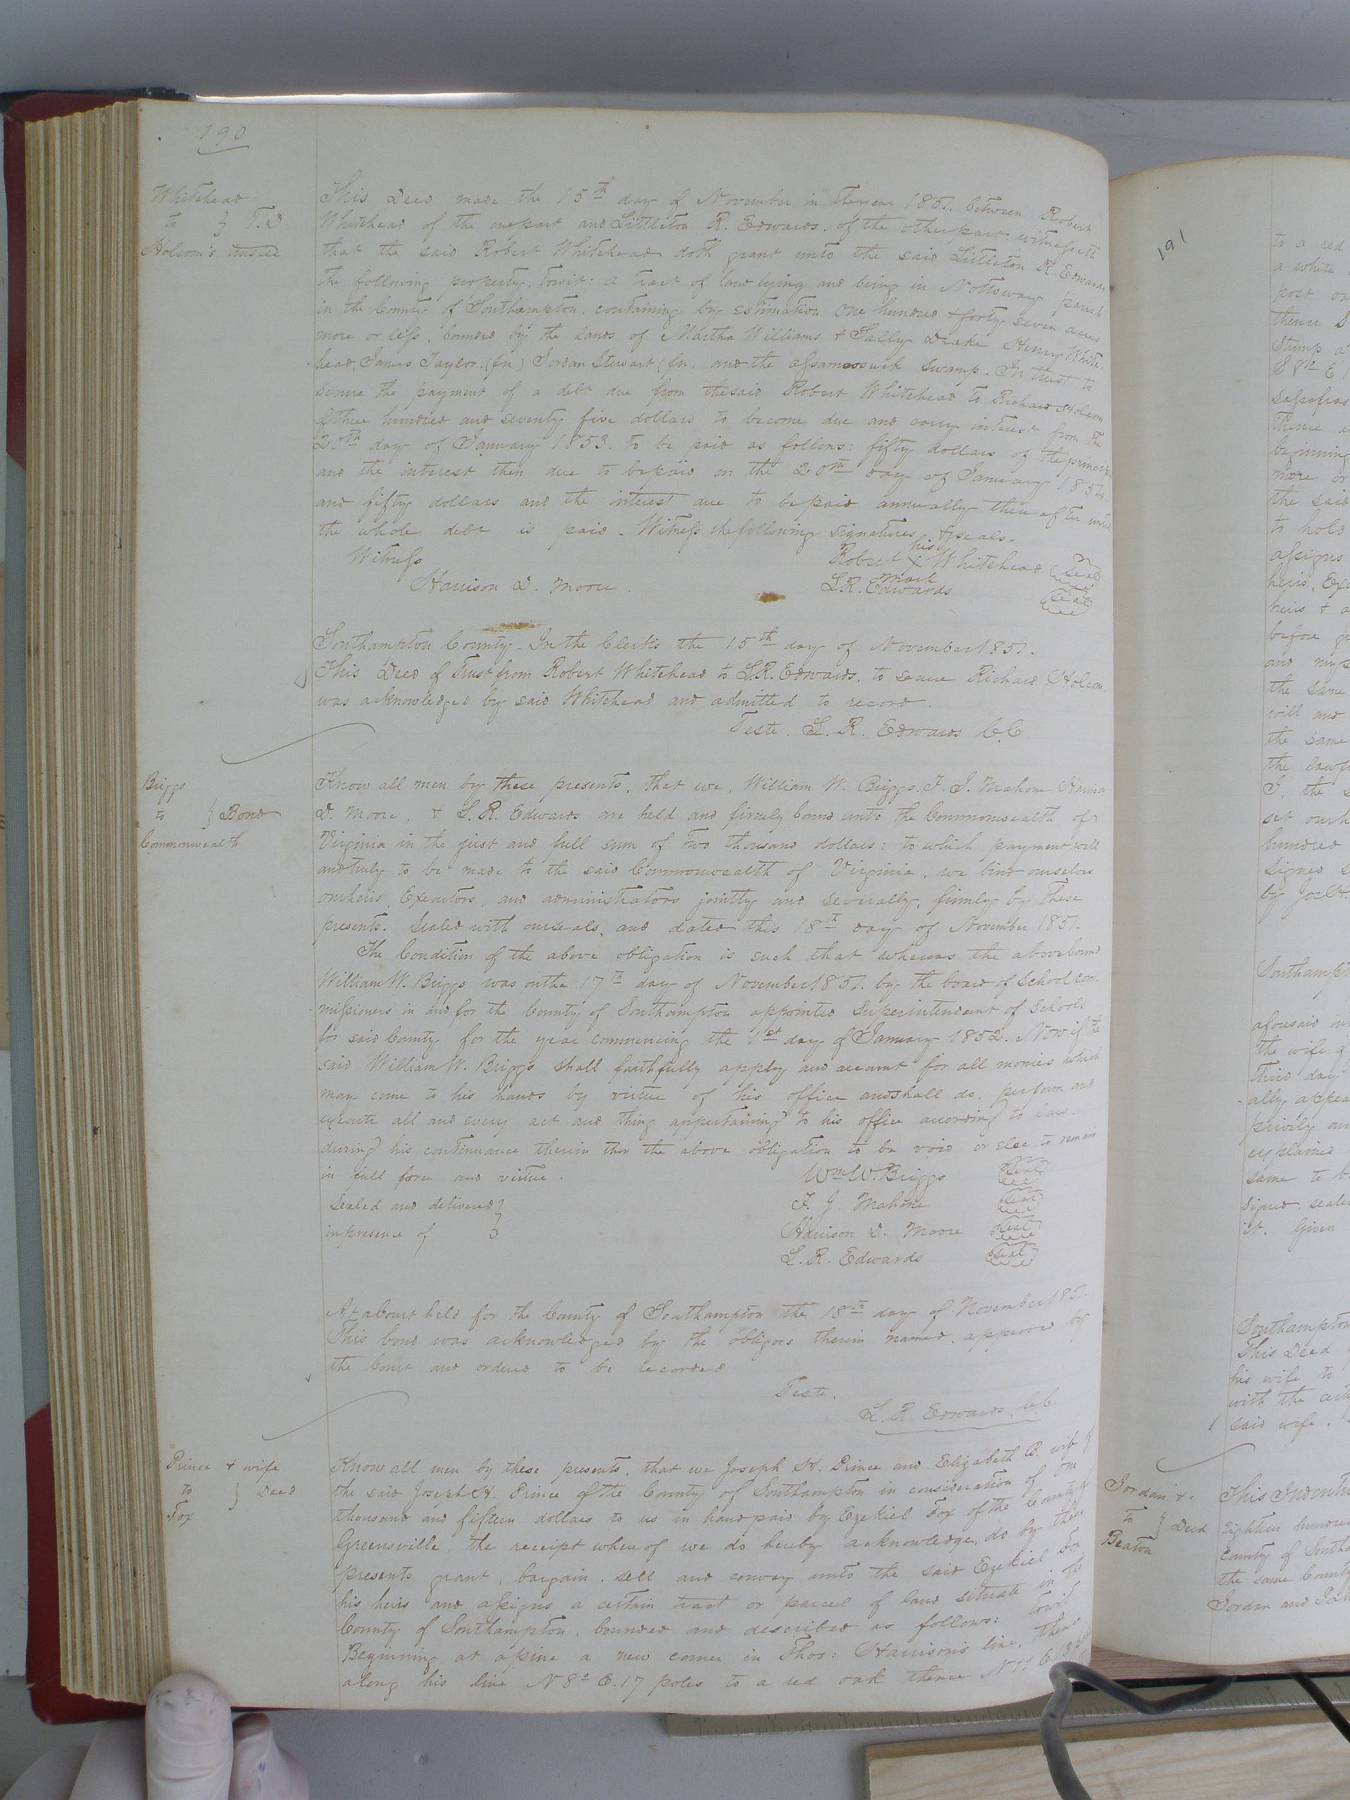 190
Whitehead
to } T.D
Holcom's trustee
This Deed made the 15th day of November in the year 1851. between Robert
Whitehead of the one part and Littleton R. Edwards. of the other part: witnesseth
that the said Robert Whitehead doth grant unto the said Littleton R. Edwards
the following property, towit: a tract of land lying and being in Nottoway parish
in the County of Southampton. containing by estimation One hundred & forty seven acres
more or less, bounded by the lands of Martha Williams & Sally Drake Henry White-
head, James Taylor, (fn) Jordan Stewart (fn. and the Assamoosick Swamp. In trust to
secure the payment of a debt due from the said Robert Whitehead to Richard Holcom
of three hundred and seventy five dollars to become due and carry interest from the
20th day of January 1853. to be paid as follows: fifty dollars of the principal
and the interest then due to be paid on the 20th day of January 1854
and fifty dollars and the interest due to be paid annually there after until
the whole debt is paid. Witness the following signatures & seals.
Witness
Robert his X mark Whitehead (seal)
Harrison D. Moore.
L.R. Edwards (seal)
Southampton County. In the Clerk's the 15th day of November 1851.
This Deed of Trust from Robert Whitehead to L.R. Edwards. to secure Richard Holcom
was acknowledged by said Whitehead and admitted to record.
Teste. L. R. Edwards C.C
Briggs
to } Bond
Commonwealth
Know all men by these presents, that we, William W. Briggs. F. J. Mahone Harrison
D. Moore. & L.R. Edwards are held and firmly bound unto the Commonwealth of
Virginia in the just and full sum of Two thousand dollars: to which payment well
and truly to be made to the said Commonwealth of Virginia, we bind ourselves
our heirs, Executors, and administrators jointly and severally, firmly by these
presents. Sealed with our seals, and dated this 18th day of November 1851.
The Condition of the above obligation is such that whereas the above bound
William W. Briggs was on the 17th day of November 1851. by the board of School Com-
missioners in and for the County of Southampton appointed Superintendent of Schools
for said County for the year commencing the 1st day of January 1852. Now if the
said William W. Briggs shall faithfully apply and account for all monies which
may come to his hands by virtue of his office and shall do, perform and
execute all and every act and thing appertaining to his office according to law.
during his continuance therein then the above obligation to be void or else to remain
in full force and virtue.
Wm W. Briggs (seal)
Sealed and delivered }
F. J. Mahone (seal)
in presence of }
Harrison D. Moore (seal)
L. R. Edwards (seal)
At a Court held for the County of Southampton the 18th day of November 1851.
This bond was acknowledged by the obligors therein named. approved by
the Court and ordered to be recorded
Teste.
L. R. Edwards. C.C.
Prince & wife
to } Deed
Fox
Know all men by these presents, that we Joseph H. Prince and Elizabeth B. wife of
the said Joseph H. Prince of the County of Southampton in consideration of One
thousand and fifteen dollars to us in hand paid by Ezekiel Fox of the County of
Greensville. the receipt whereof we do hereby acknowledge, do by these
presents grant, bargain, sell and convey unto the said Ezekiel Fox
his heirs and assigns a certain tract or parcel of land situate in the
County of Southampton, bounded and described as follows: towit
Beginning at a pine a new corner in Thos: Harrison's line, thence
along his line N 8° E. 17 poles to a red oak thence N 11 E 13
191
to a red
a white
post oa
thence S
stump a
S 8° E 1
sassafras
thence a
beginning
more or
the said
to hold
assigns
heirs, Exe
heirs & a
before g
and myse
the same
will and
the same
the lawfu
I, the s
set our h
hundred
signed s
by Jos. H.
Southampt
aforesaid
the wife of
third day
ally appea
privily an
explained
same to b
signed, seale
it. Given
Southampton
This Deed
his wife to
with the
said wife.
Jordan &c
to } Deed
Beaton
This Indentu
Eighteen hundred
County of South
the same County
Jordan and